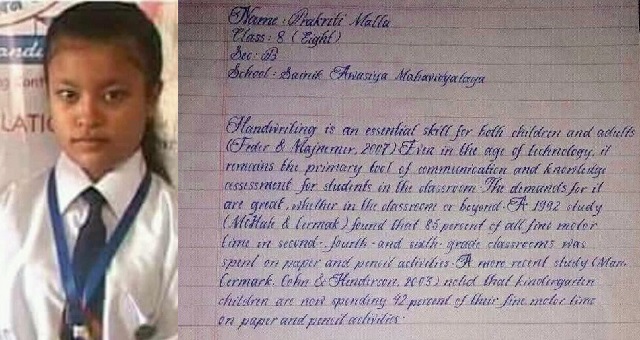 LATI
Name : Prakriti Malla
Class : 8 (Eight)
Sec : B
School : Sainik Awasiya Mahavidyalaya
Handwriting is an essential skill for both children and adults
(Feder & Majnemer, 2007) Even in the age of technology, it
remains the primary tool of communication and knowledge
assessment for students in the classroom. The demands for it
are great, whether in the classroom or beyond. A 1992 study
(McHale & Cermak) found that 85 percent of all fine motor
time in second-, fourth- and sixth- grade classrooms was
spent on paper and pencil activities. A more recent study (Marr,
Cermark, Cohn & Henderson, 2003) noted that kindergarten
children are now spending 42 percent of their fine motor time
on paper and pencil activities.